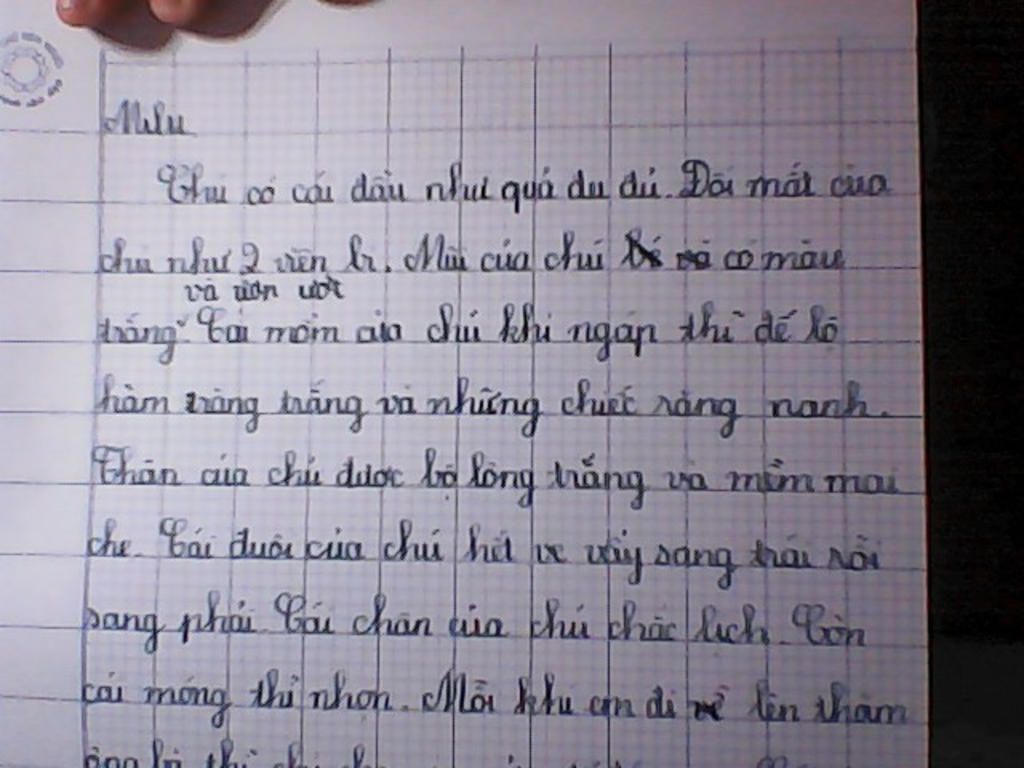 Milu
Chú có cái đầu như quả đu đủ. Đôi mắt của
chú như 2 viên bi. Mũi của chú có màu
và ươn ướt
trắng. Cái mồm của chú khi ngáp thì để lộ
hàm răng trắng và những chiếc răng nanh.
Thân của chú được bộ lông trắng và mềm mại
che. Cái đuôi của chú hết ve vẩy sang trái rồi
sang phải. Cái chân của chú chắc lịch. Còn
cái móng thì nhọn. Mỗi khi em đi lên thăm
ông bà thì chú